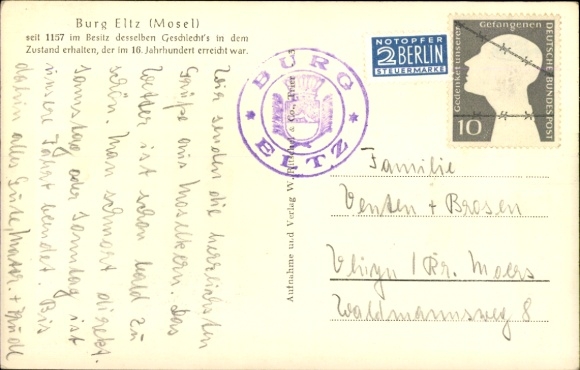 Burg Eltz (Mosel)
seit 1157 im Besitz desselben Geschlecht's in dem
Zustand erhalten, der im 16. Jahrhundert erreicht war.
Wir senden die herzlichsten
Grüße aus Moselkern. Das
Wetter ist schon bald zu
schön. Man schmort direkt.
Samstag oder Sonntag ist
unsere Fahrt beendet. Bis
dahin alles Gute,
BURG
ELTZ
Aufnahme und Verlag W.
& Co., Trier
NOTOPFER
2 BERLIN
STEUERMARKE
Gedenket unserer Gefangenen
DEUTSCHE BUNDESPOST
10
Familie
Venten + Brosen
/ Kr. Moers
Waldmannsweg 8